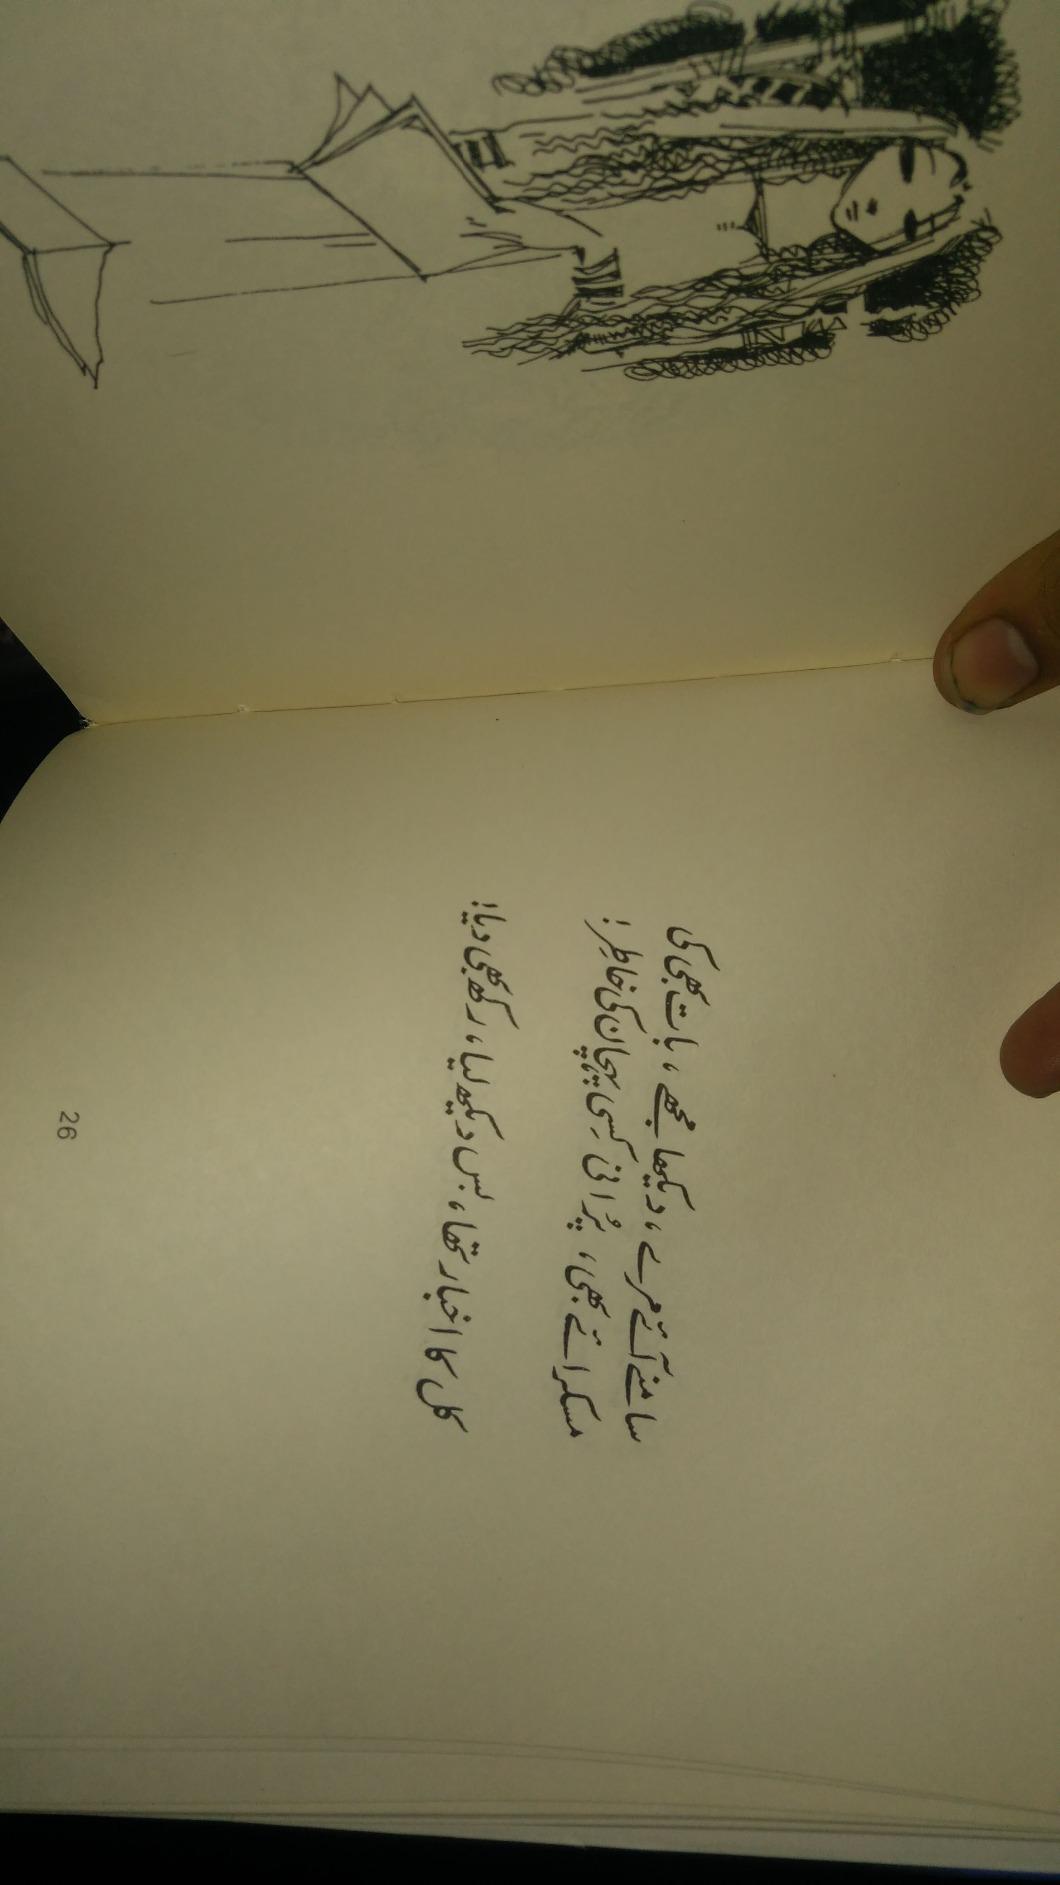 سامنے آئے مرے، دیکھا مجھے، بات بھی کی
مسکرائے بھی، پُرانی کسی پہچان کی خاطِر!
کل کا اخبار تھا، بس دیکھ لیا، رکھ بھی دیا!
26